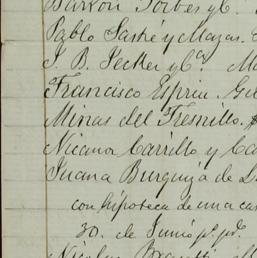 Barron Forbes y Cª
Pablo Saske y Mazas.
J. B. Jecker y Cª
Francisco Espriu.
Minas del Fresnillo.
Nicanor Carrillo y
Juana Burguza de
con hipoteca de una
30. de Junio p. pdº
Nicolas